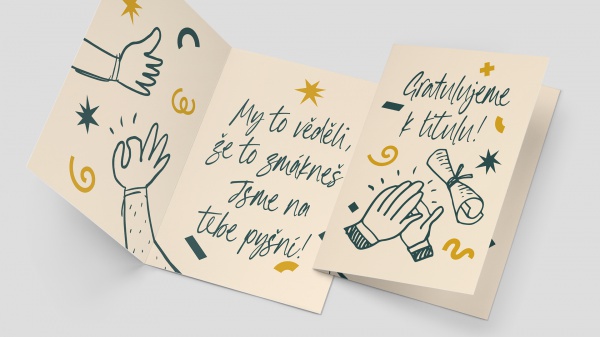 My to věděli,
že to zmákneš
Jsme na
tebe pyšní!
Gratulujeme
k titulu!